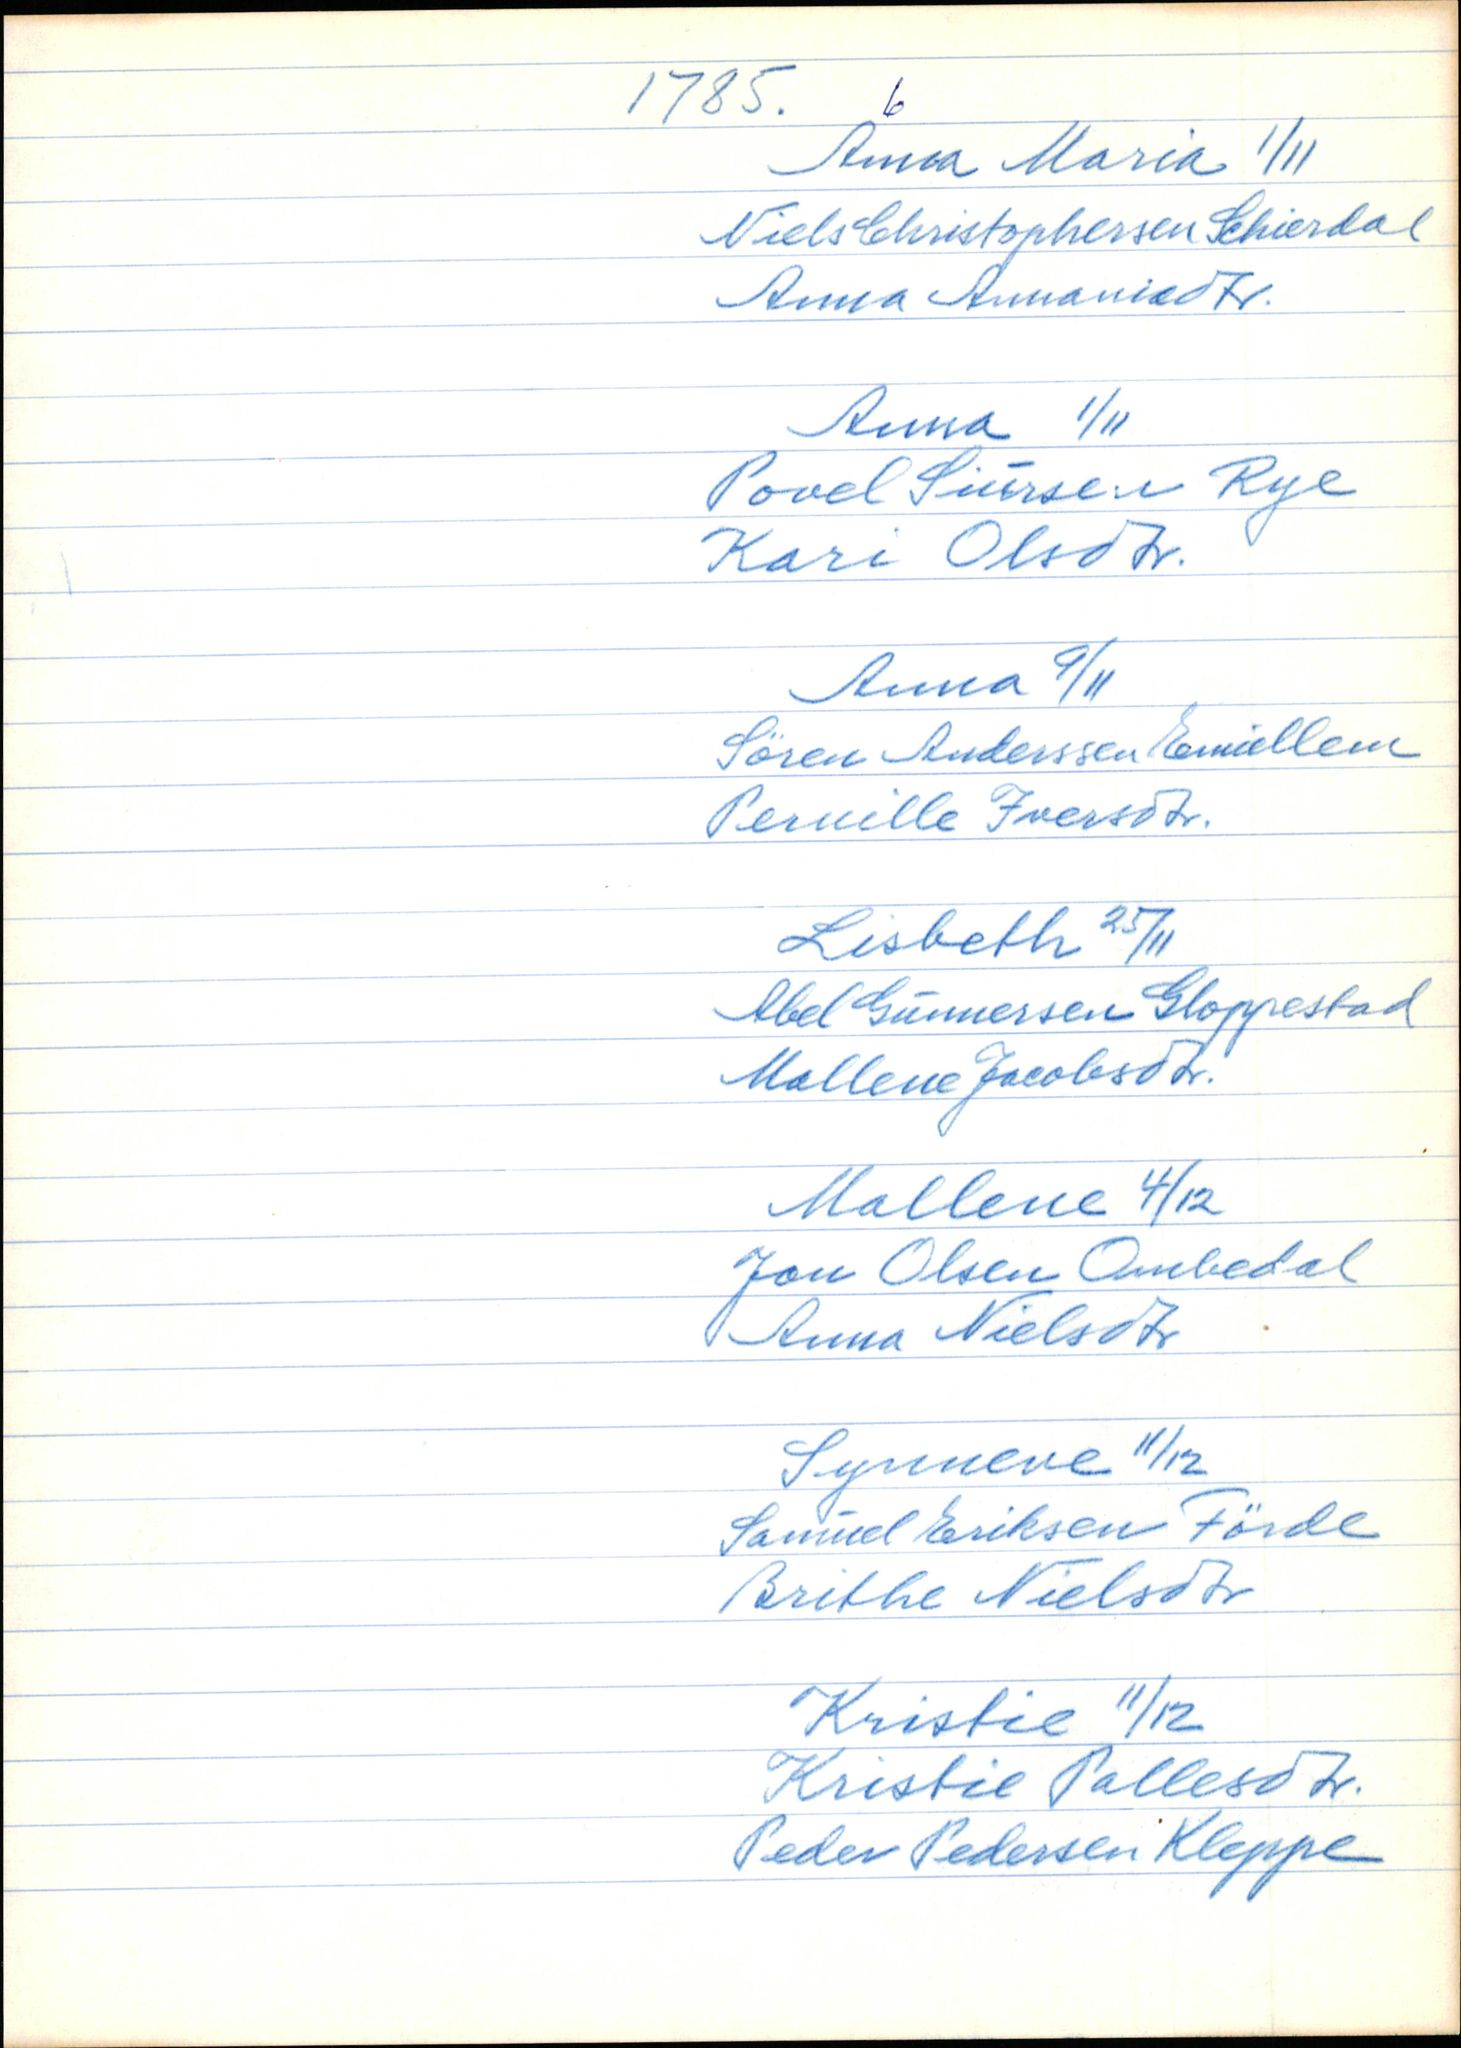 1785. 6
Anna Maria 1/11
Niels Christophersen Schierdal
Anna Annaniadtr.
Anna 1/11
Povel Siursen Rye
Kari Olsdtr.
Anna 9/11
Sören Anderssen Emiellem
Pernille Iversdtr.
Lisbeth 25/11
Abel Gunnersen Gloppestad
Mallene Jacobsdtr.
Mallene 4/12
Jon Olsen Ombedal
Anna Nielsdtr
Synneve 11/12
Samuel Eriksen Förde
Brithe Nielsdtr
Kristie 11/12
Kristie Pallesdtr.
Peder Pedersen Kleppe